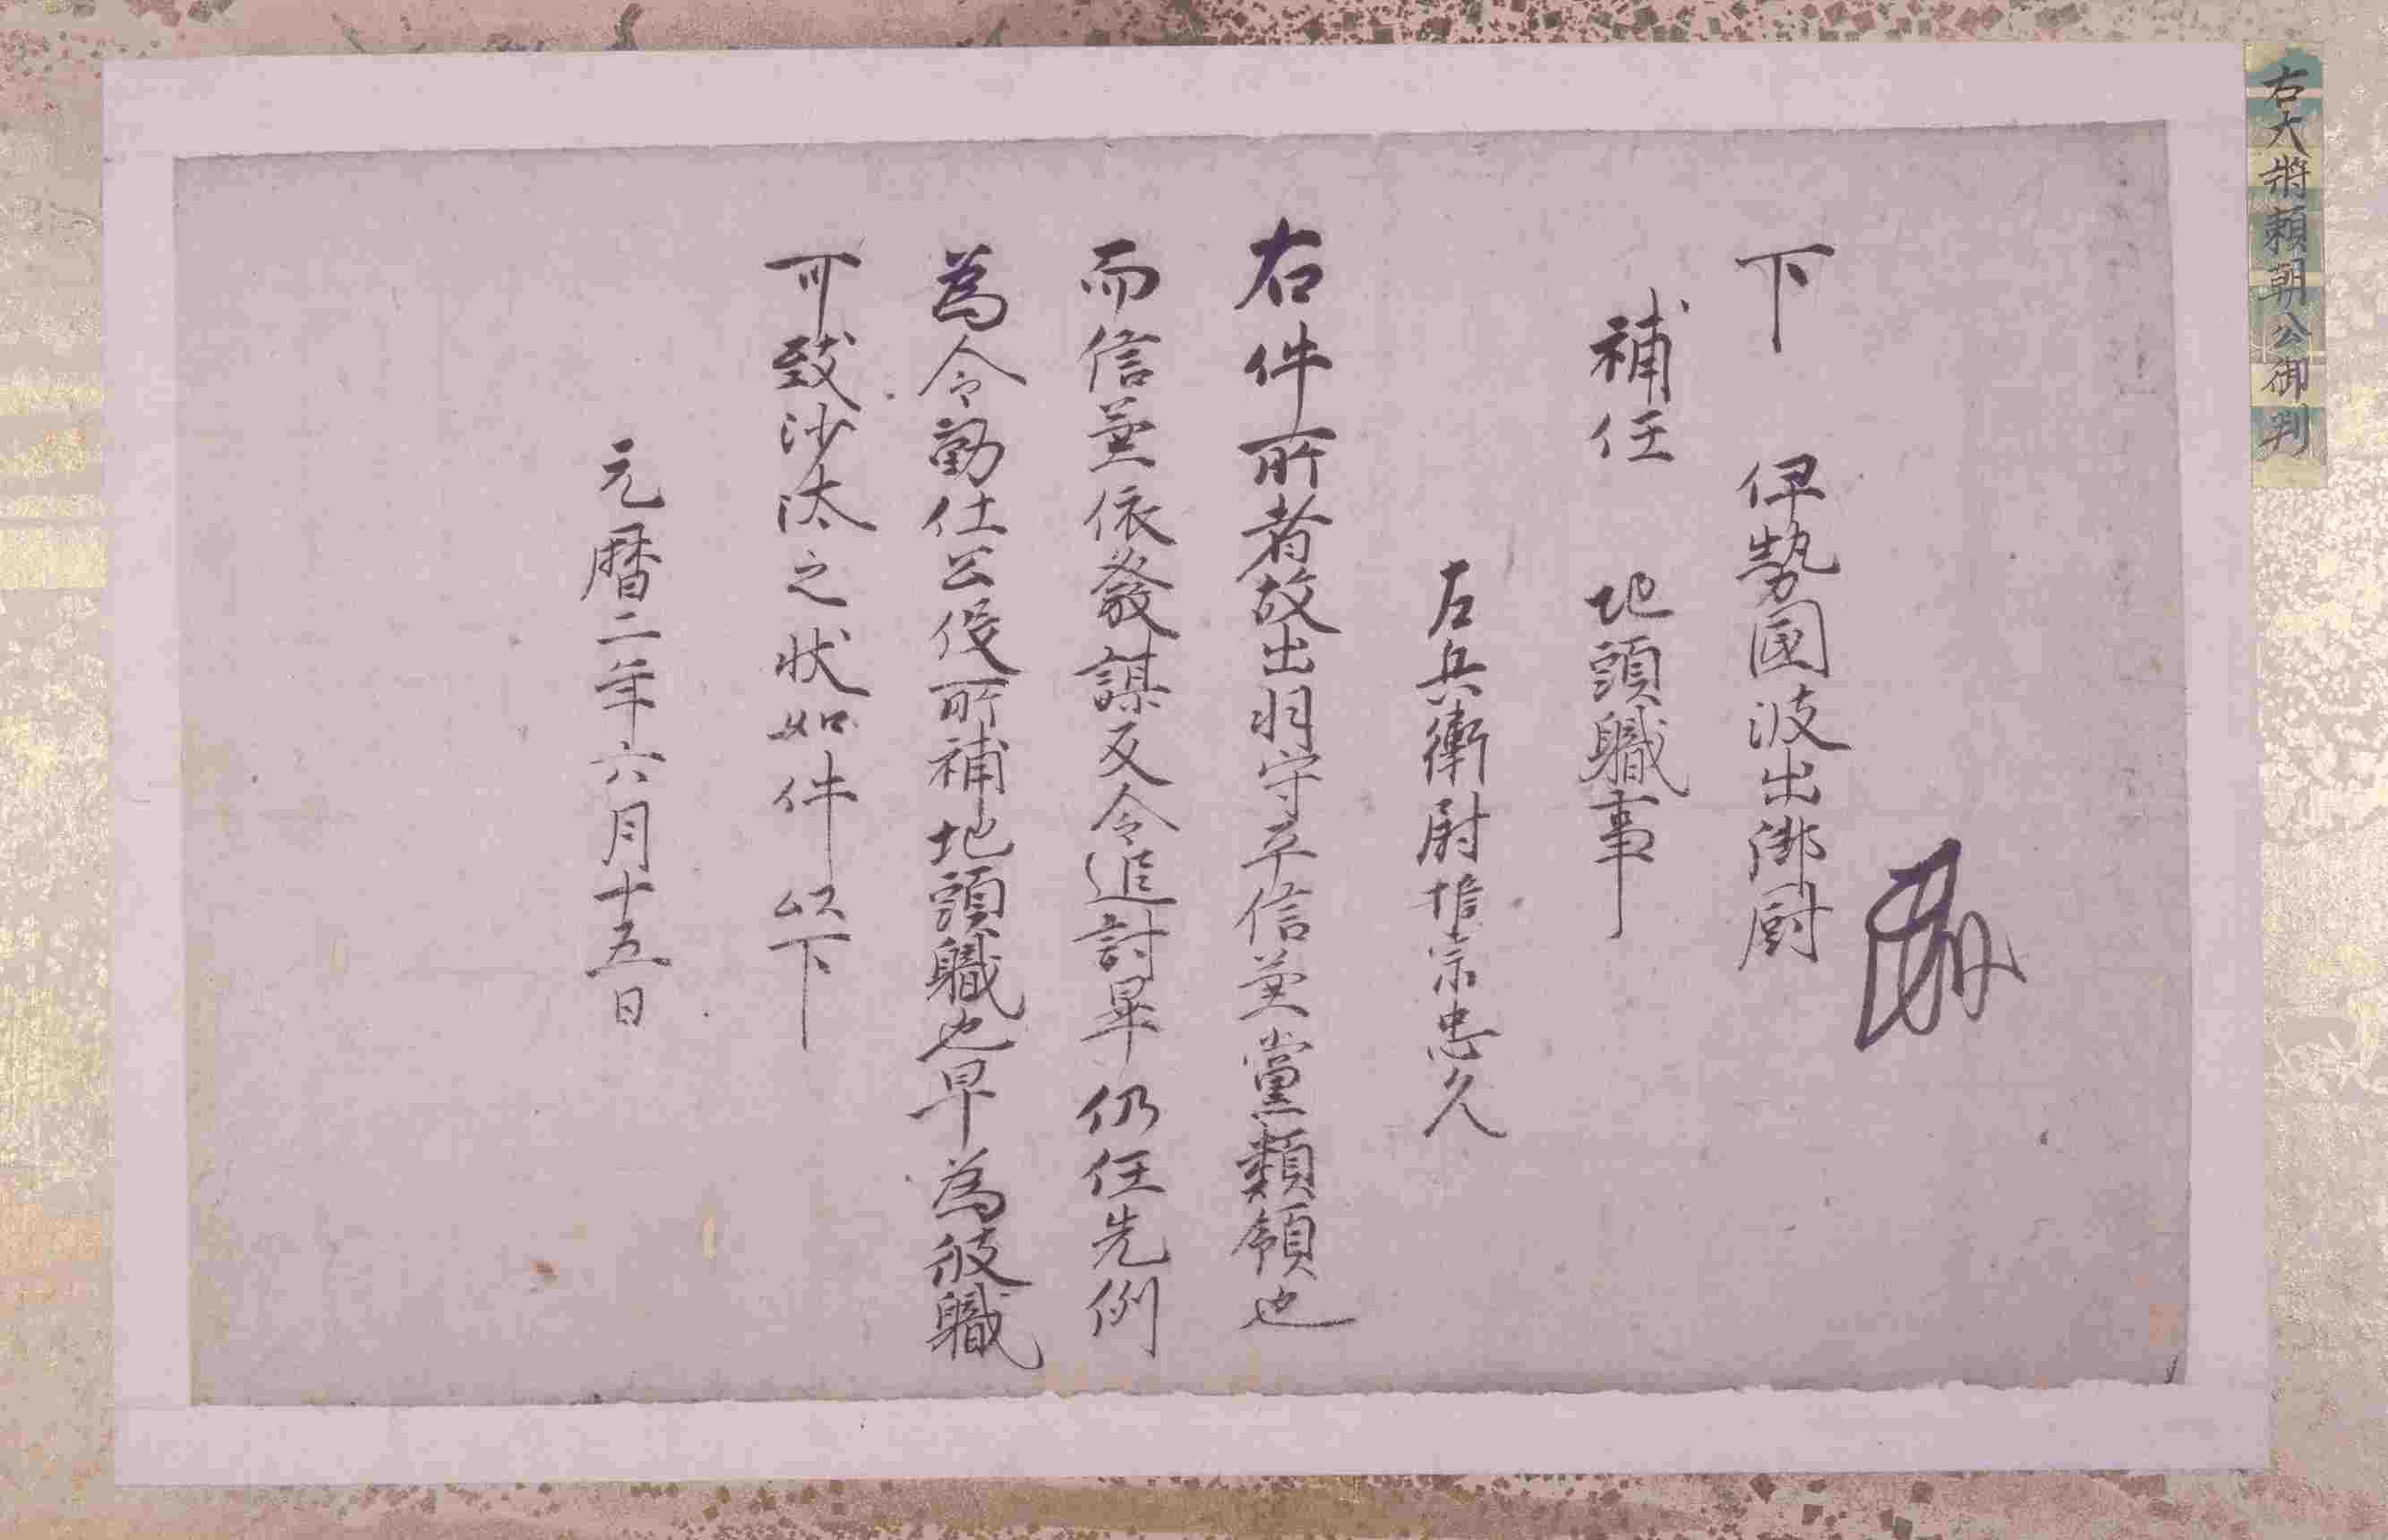 右大将頼朝公御判
下 伊勢國波出御厨
補任 地頭職事
左兵衛尉惟宗忠久
右件所者故出羽守平信兼黨類領也
而信兼依發謀反令追討畢仍任先例
為令勤仕公役所補地頭職也早為彼職
可致沙汰之状如件以下
元暦二年六月十五日